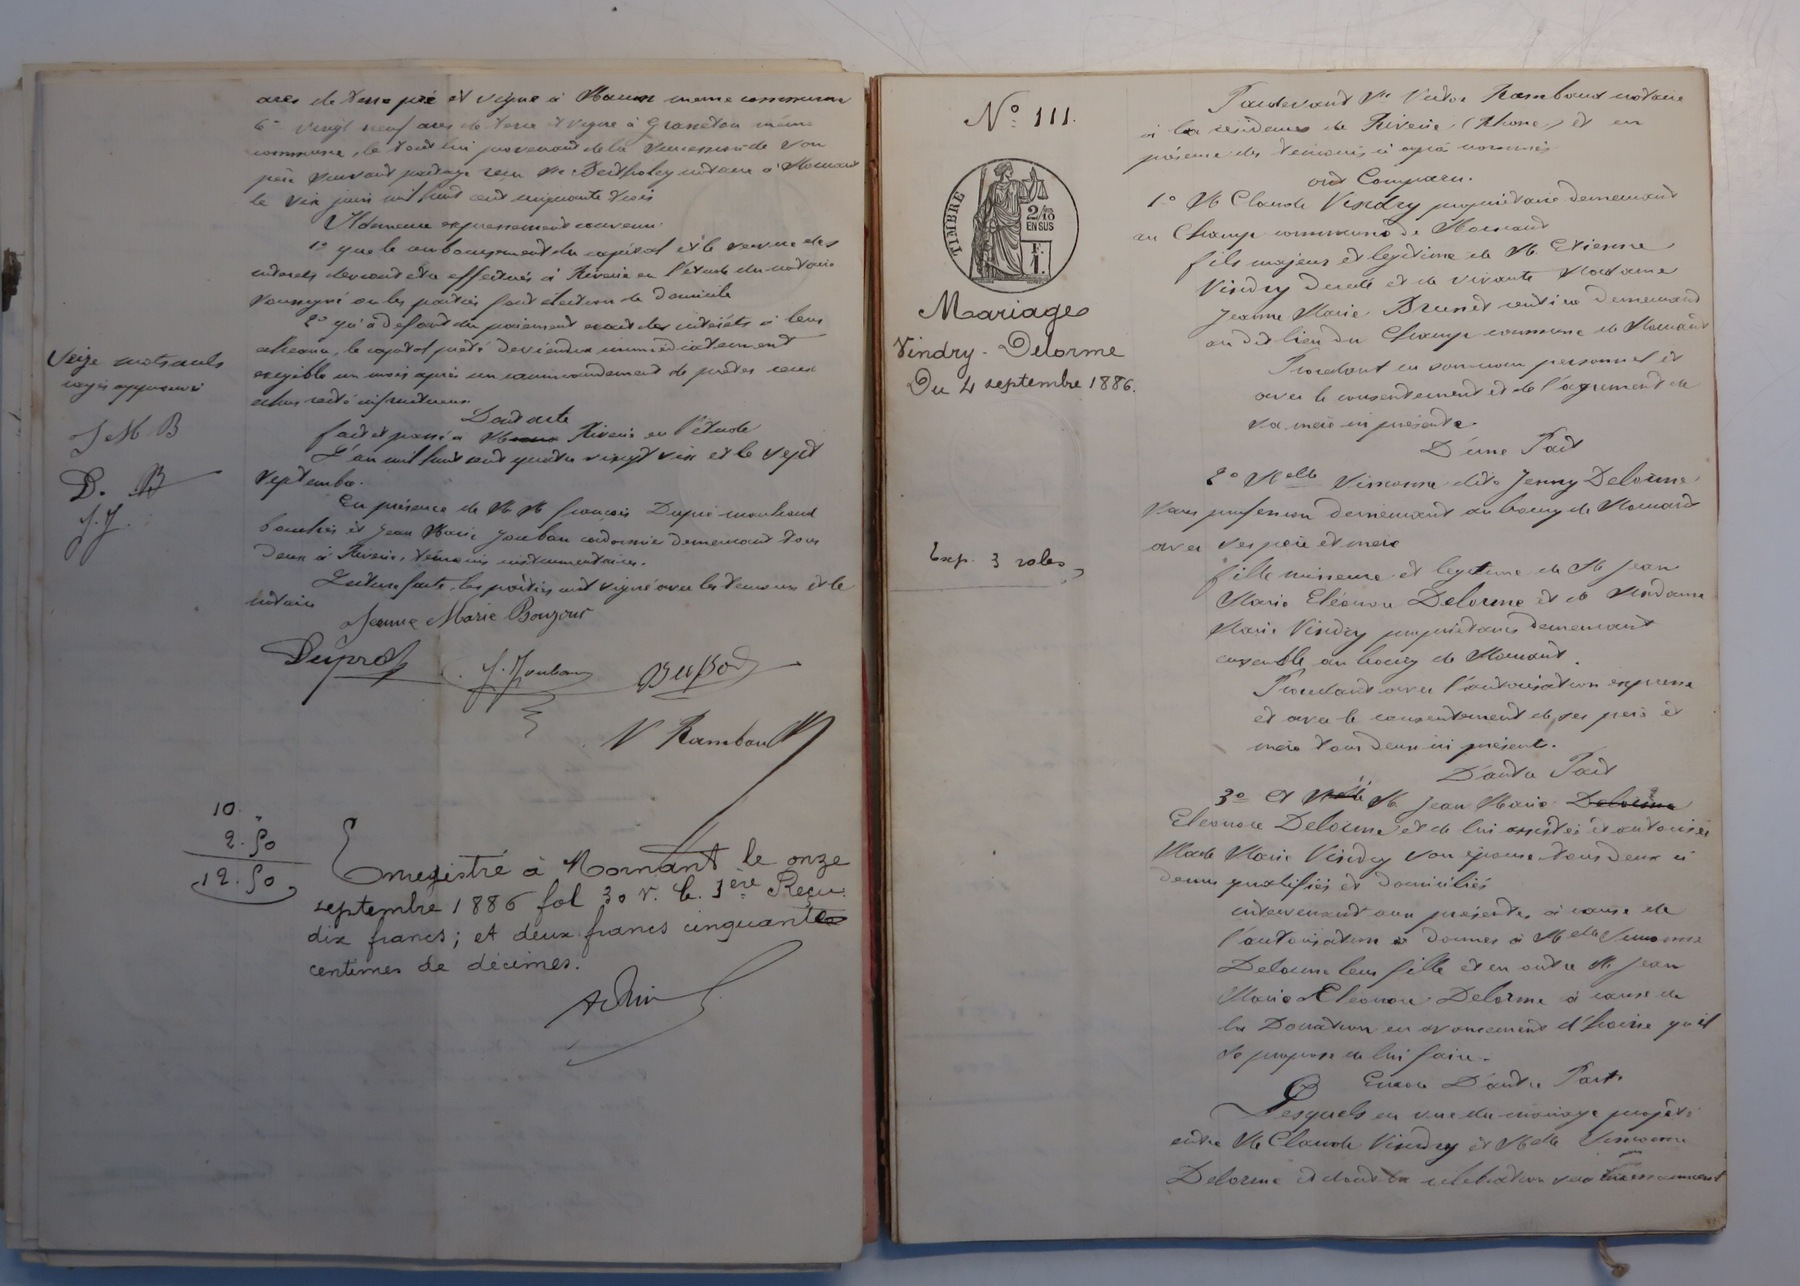 ares de terre pré et vigne à même commune
6° vingt neuf ares de terre et vigne à même
commune, le tout lui provenant de la succession de son
père suivant partage reçu Me notaire à Mornant
le six juin mil huit cent cinquante trois
Il demeure expressément convenu:
1° que le remboursement du capital et le service des
intérêts devront être effectués à Riverie en l'étude du notaire
soussigné où les parties font élection de domicile
2° qu'à défaut du paiement exact des intérêts à leur
échéance, le capital prêté deviendra immédiatement
exigible un mois après un commandement de payer
resté infructueux.
Dont acte
fait et passé à Riverie en l'étude
L'an mil huit cent quatre vingt six et le sept
septembre.
En présence de MM. François Dupré marchand
boucher et Jean Marie Jouban cordonnier demeurant tous
deux à Riverie, témoins instrumentaires.
Lecture faite, les parties ont signé avec les témoins et le
notaire
Jeanne Marie Bonjour
Dupré J. Jouban
V Rambaud
Seize mots nuls
rayés approuvés
J M B
D. B
J. J.
10. "
2. 50
12. 50
Enregistré à Mornant le onze
septembre 1886 fol 30 v. c. 1ère Reçu
dix francs; et deux francs cinquante
centimes de décimes.
N° 111.
TIMBRE
2/10
EN SUS
F.
1.
Mariage
Vindry - Delorme
Du 4 septembre 1886.
Exp. 3 roles
Pardevant Me Victor Rambaud notaire
à la résidence de Riverie (Rhône) et en
présence des témoins ci après nommés
ont Comparu.
1° M Claude Vindry propriétaire demeurant
au Champ commune de Mornant
fils majeur et légitime de M. Etienne
Vindry décédé et de vivante Madame
Jeanne Marie Brunet rentière demeurant
au dit lieu du Champ commune de Mornant
Procédant en son nom personnel et
avec le consentement et de l'agrément de
sa mère ici présente
D'une Part
2° Melle Simonne dite Jenny Delorme
sans profession demeurant au bourg de Mornant
avec ses père et mère
fille mineure et légitime de M Jean
Marie Eléonore Delorme et de Madame
Marie Vindry propriétaires demeurant
ensemble au bourg de Mornant.
Procédant avec l'autorisation expresse
et avec le consentement de ses père et
mère tous deux ici présents.
D'autre Part
3° Et M Jean Marie Delorme
Eléonore Delorme et de lui assistée et autorisée
Made Marie Vindry son épouse tous deux ci
dessus qualifiés et domiciliés
intervenant aux présentes à cause de
l'autorisation à donner à Melle Simonne
Delorme leur fille et en outre M Jean
Marie Eléonore Delorme à cause de
la Donation en avancement d'hoirie qu'il
se propose de lui faire.
Encore D'autre Part.
Lesquels en vue du mariage projeté
entre M Claude Vindry et Melle Simonne
Delorme et dont la célébration sera incessamment